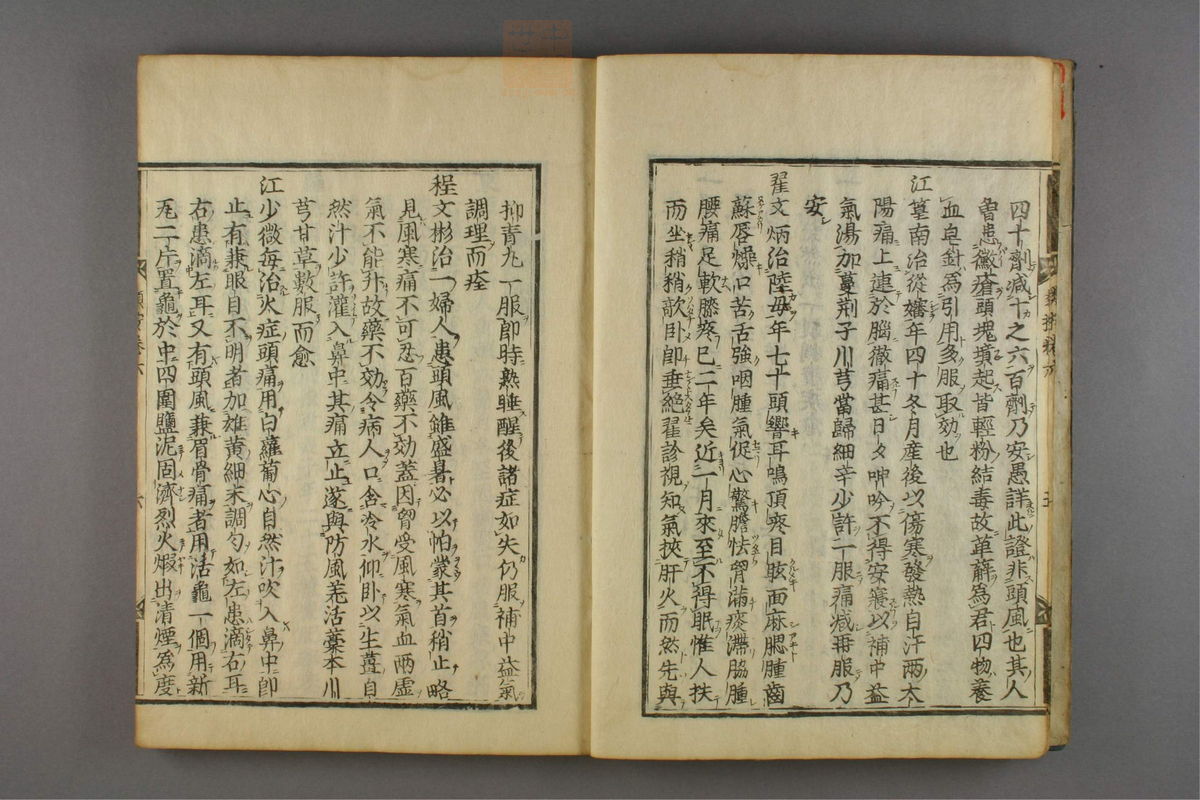 四十劑減十之六百劑乃安愚詳此證非頭風也其人
曾患黴瘡頭塊墳起皆輕粉結毒故萆薢為君四物養
血皂針為引用多服取効也
江篁南治從嬸年四十冬月產後以傷寒發熱自汗兩太
陽痛上連於腦徹痛甚日夕呻吟不得安寢以補中益
氣湯加蔓荆子川芎當歸細辛少許一服痛減再服乃
安
翟文炳治陸母年七十頭響耳鳴頂疼目眩面麻腮腫齒
蘇唇燥口苦舌強咽腫氣促心驚膽怯胷滿痰滯脇腫
腰痛足軟膝疼已二年矣近一月來至不得眠惟人扶
而坐稍稍歆卧卽垂絕翟診視知氣挾肝火而然先與
抑青丸一服卽時熟睡醒後諸症如失仍服補中益氣
調理而痊
程文彬治一婦人患頭風雖盛暑必以帕蒙其首稍止略
見風寒痛不可忍百藥不効蓋因胷受風寒氣血兩虛
氣不能升故藥不効令病人口含冷水仰卧以生薑自
然汁少許灌入鼻中其痛立止遂與防風羌活藁本川
芎甘草數服而愈
江少微每治火症頭痛用白蘿蔔心自然汁吹入鼻中卽
止有兼眼目不明者加雄黃細末調勻如左患滴右耳
右患滴左耳又有頭風兼眉骨痛者用活龜一個用新
瓦二片置龜於中四圍鹽泥固濟烈火煆出清煙為度